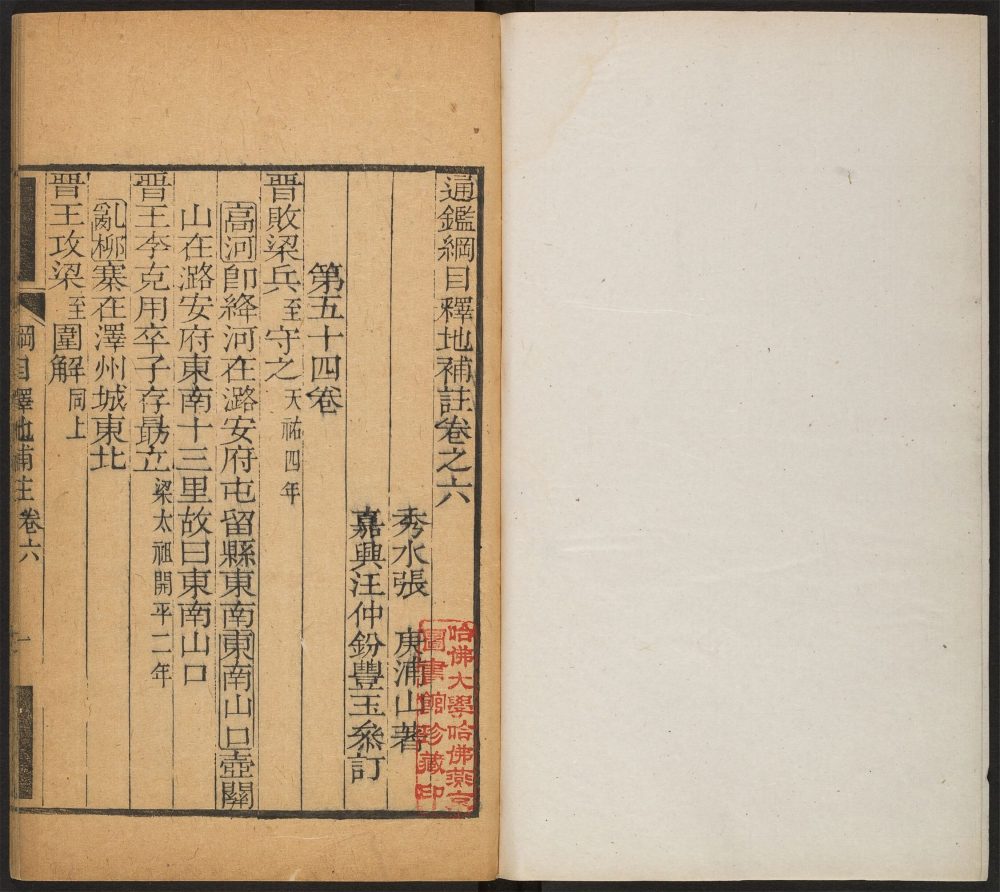 通鑑綱目釋地補註卷之六
秀水張　庚浦山著
嘉興汪仲鈖豐玉叅訂
第五十四卷
晉敗梁兵至守之天祐四年
高河卽絳河在潞安府屯留縣東南東南山口壺關
山在潞安府東南十三里故曰東南山口
晉王李克用卒子存勗立梁太祖開平二年
亂柳寨在澤州城東北
晉王攻梁至圍解同上
綱目釋地補註卷六 一
哈佛大學哈佛燕京
圖書館珍藏印